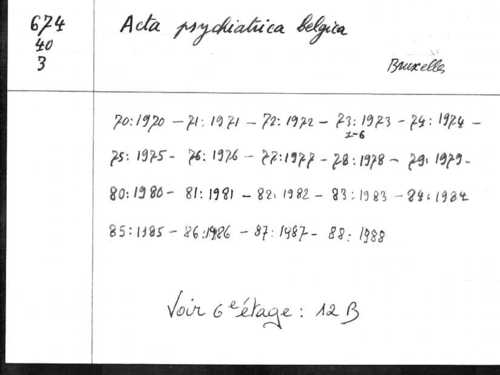 674
40
3
Acta psychiatrica belgica
Bruxelles
70:1970 – 71:1971 – 72:1972 – 73:1973 – 74:1974 –
1-6
75:1975 – 76:1976 – 77:1977 – 78:1978 – 79:1979 –
80:1980 – 81:1981 – 82:1982 – 83:1983 – 84:1984
85:1985 – 86:1986 – 87:1987 – 88:1988
Voir 6e étage : 12 B